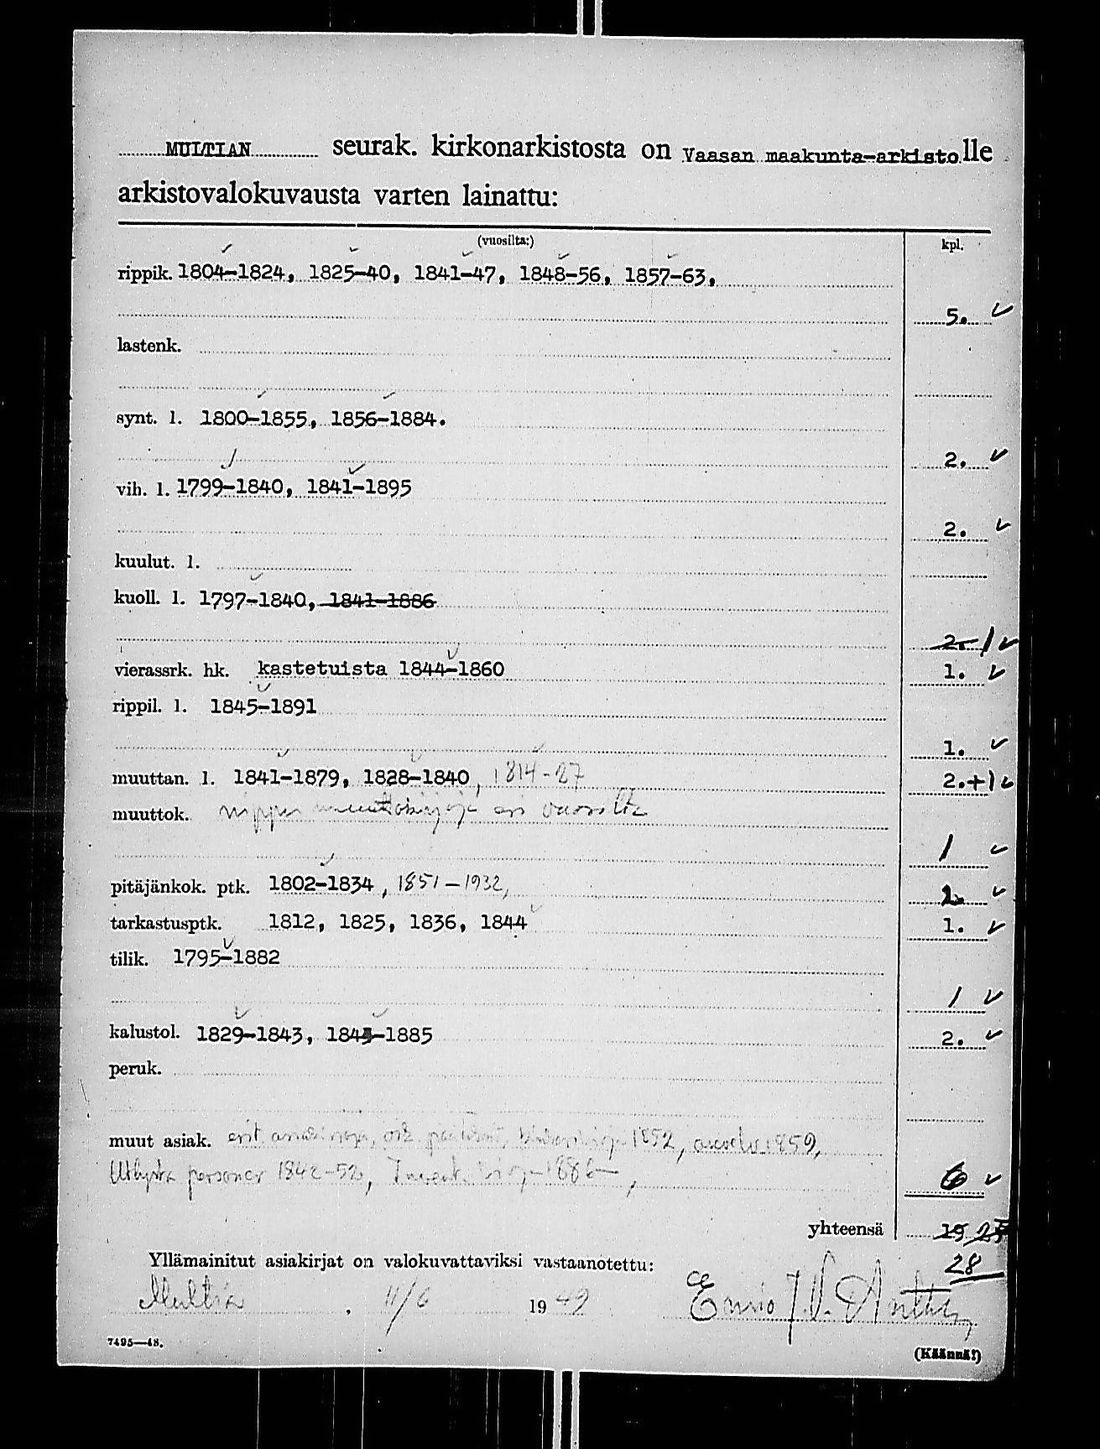 MULTIAN seurak. kirkonarkistosta on Vaasan maakunta-arkisto lle
arkistovalokuvausta varten lainattu:
(vuosilta:) kpl.
rippik. 1804-1824, 1825-40, 1841-47, 1848-56, 1857-63,
5. ✓
lastenk.
synt. l. 1800-1855, 1856-1884.
2. ✓
vih. l. 1799-1840, 1841-1895
2. ✓
kuulut. l.
kuoll. l. 1797-1840, 1841-1886
2. 1 ✓
vierassrk. hk. kastetuista 1844-1860 1. ✓
rippil. l. 1845-1891
1. ✓
muuttan. l. 1841-1879, 1828-1840, 1814-27 2.+1 ✓
muuttok. nippu muuttokirjoja eri vuosilta
1 ✓
pitäjänkok. ptk. 1802-1834, 1851-1932, ✓
tarkastusptk. 1812, 1825, 1836, 1844 1. ✓
tilik. 1795-1882
1 ✓
kalustol. 1829-1843, 1845-1885 2. ✓
peruk.
muut asiak. erit. 1852, 1859,
personer 1842-52, Invent. 1886
6 ✓
yhteensä 19 25
28
Yllämainitut asiakirjat on valokuvattaviksi vastaanotettu:
Multia . 11/6 19 49 J.V.
7495—48.
(Käännä!)